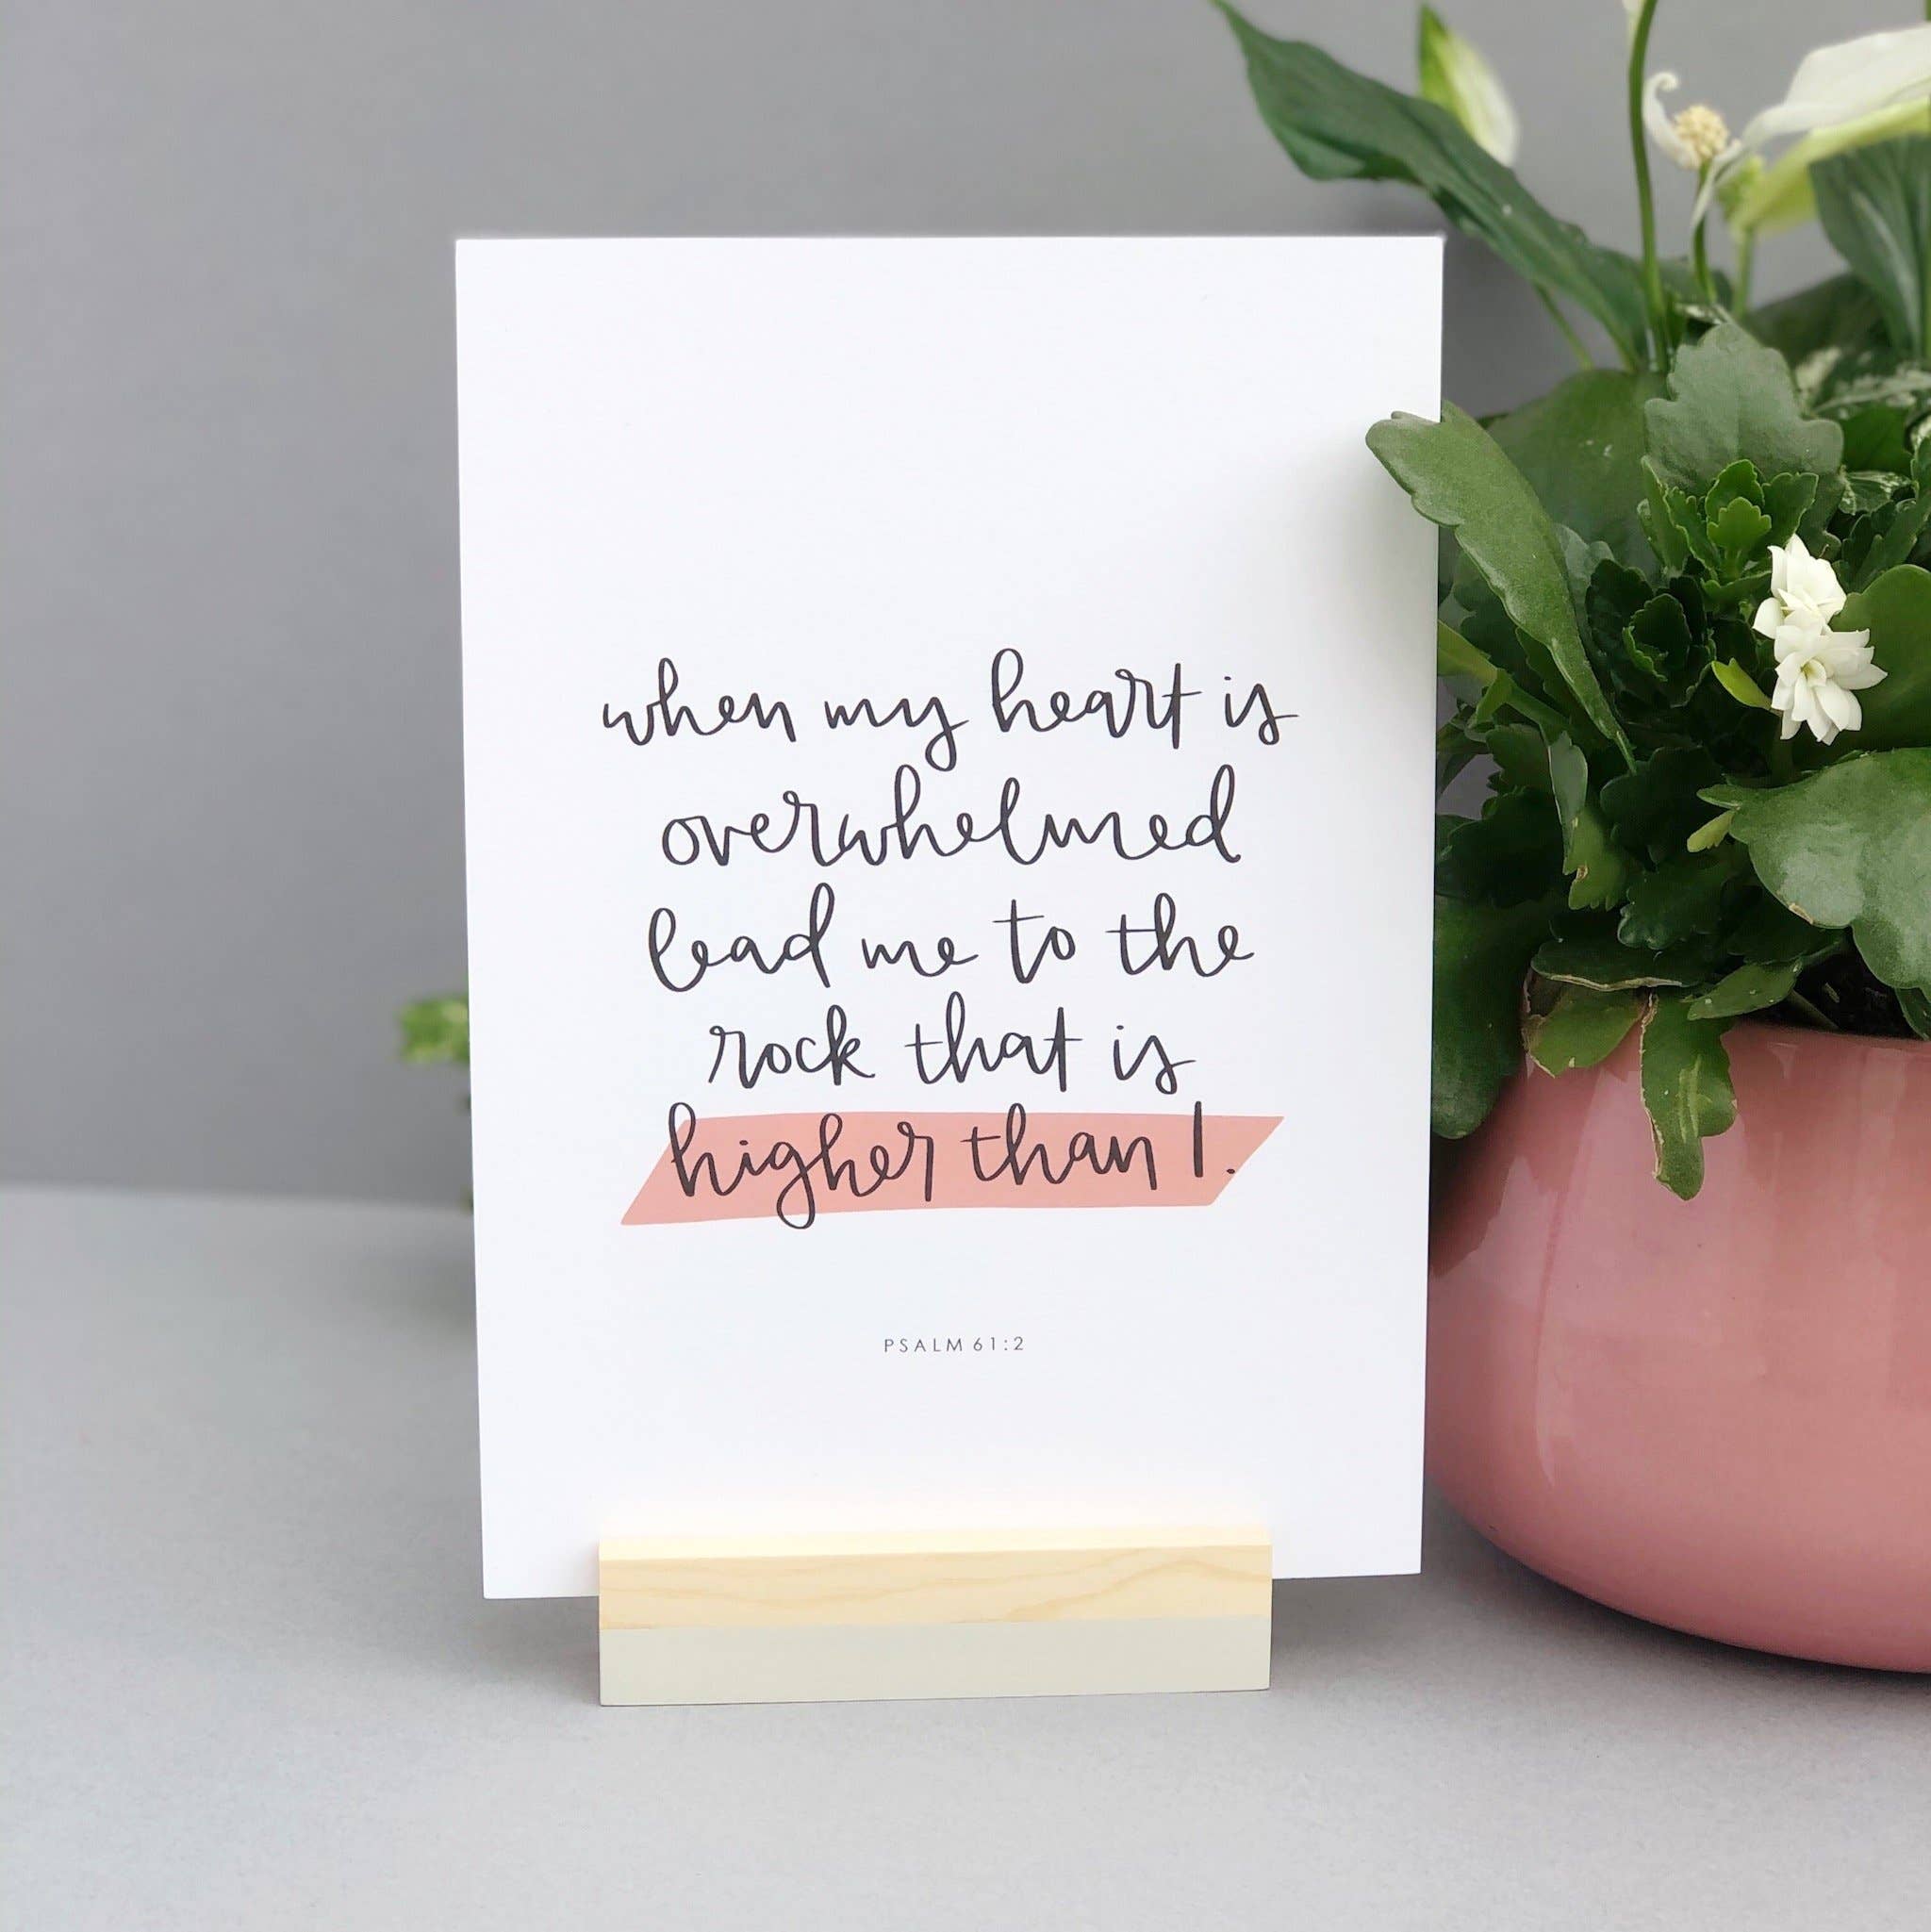 when my heart is
overwhelmed
lead me to the
rock that is
higher than I.
PSALM 61:2